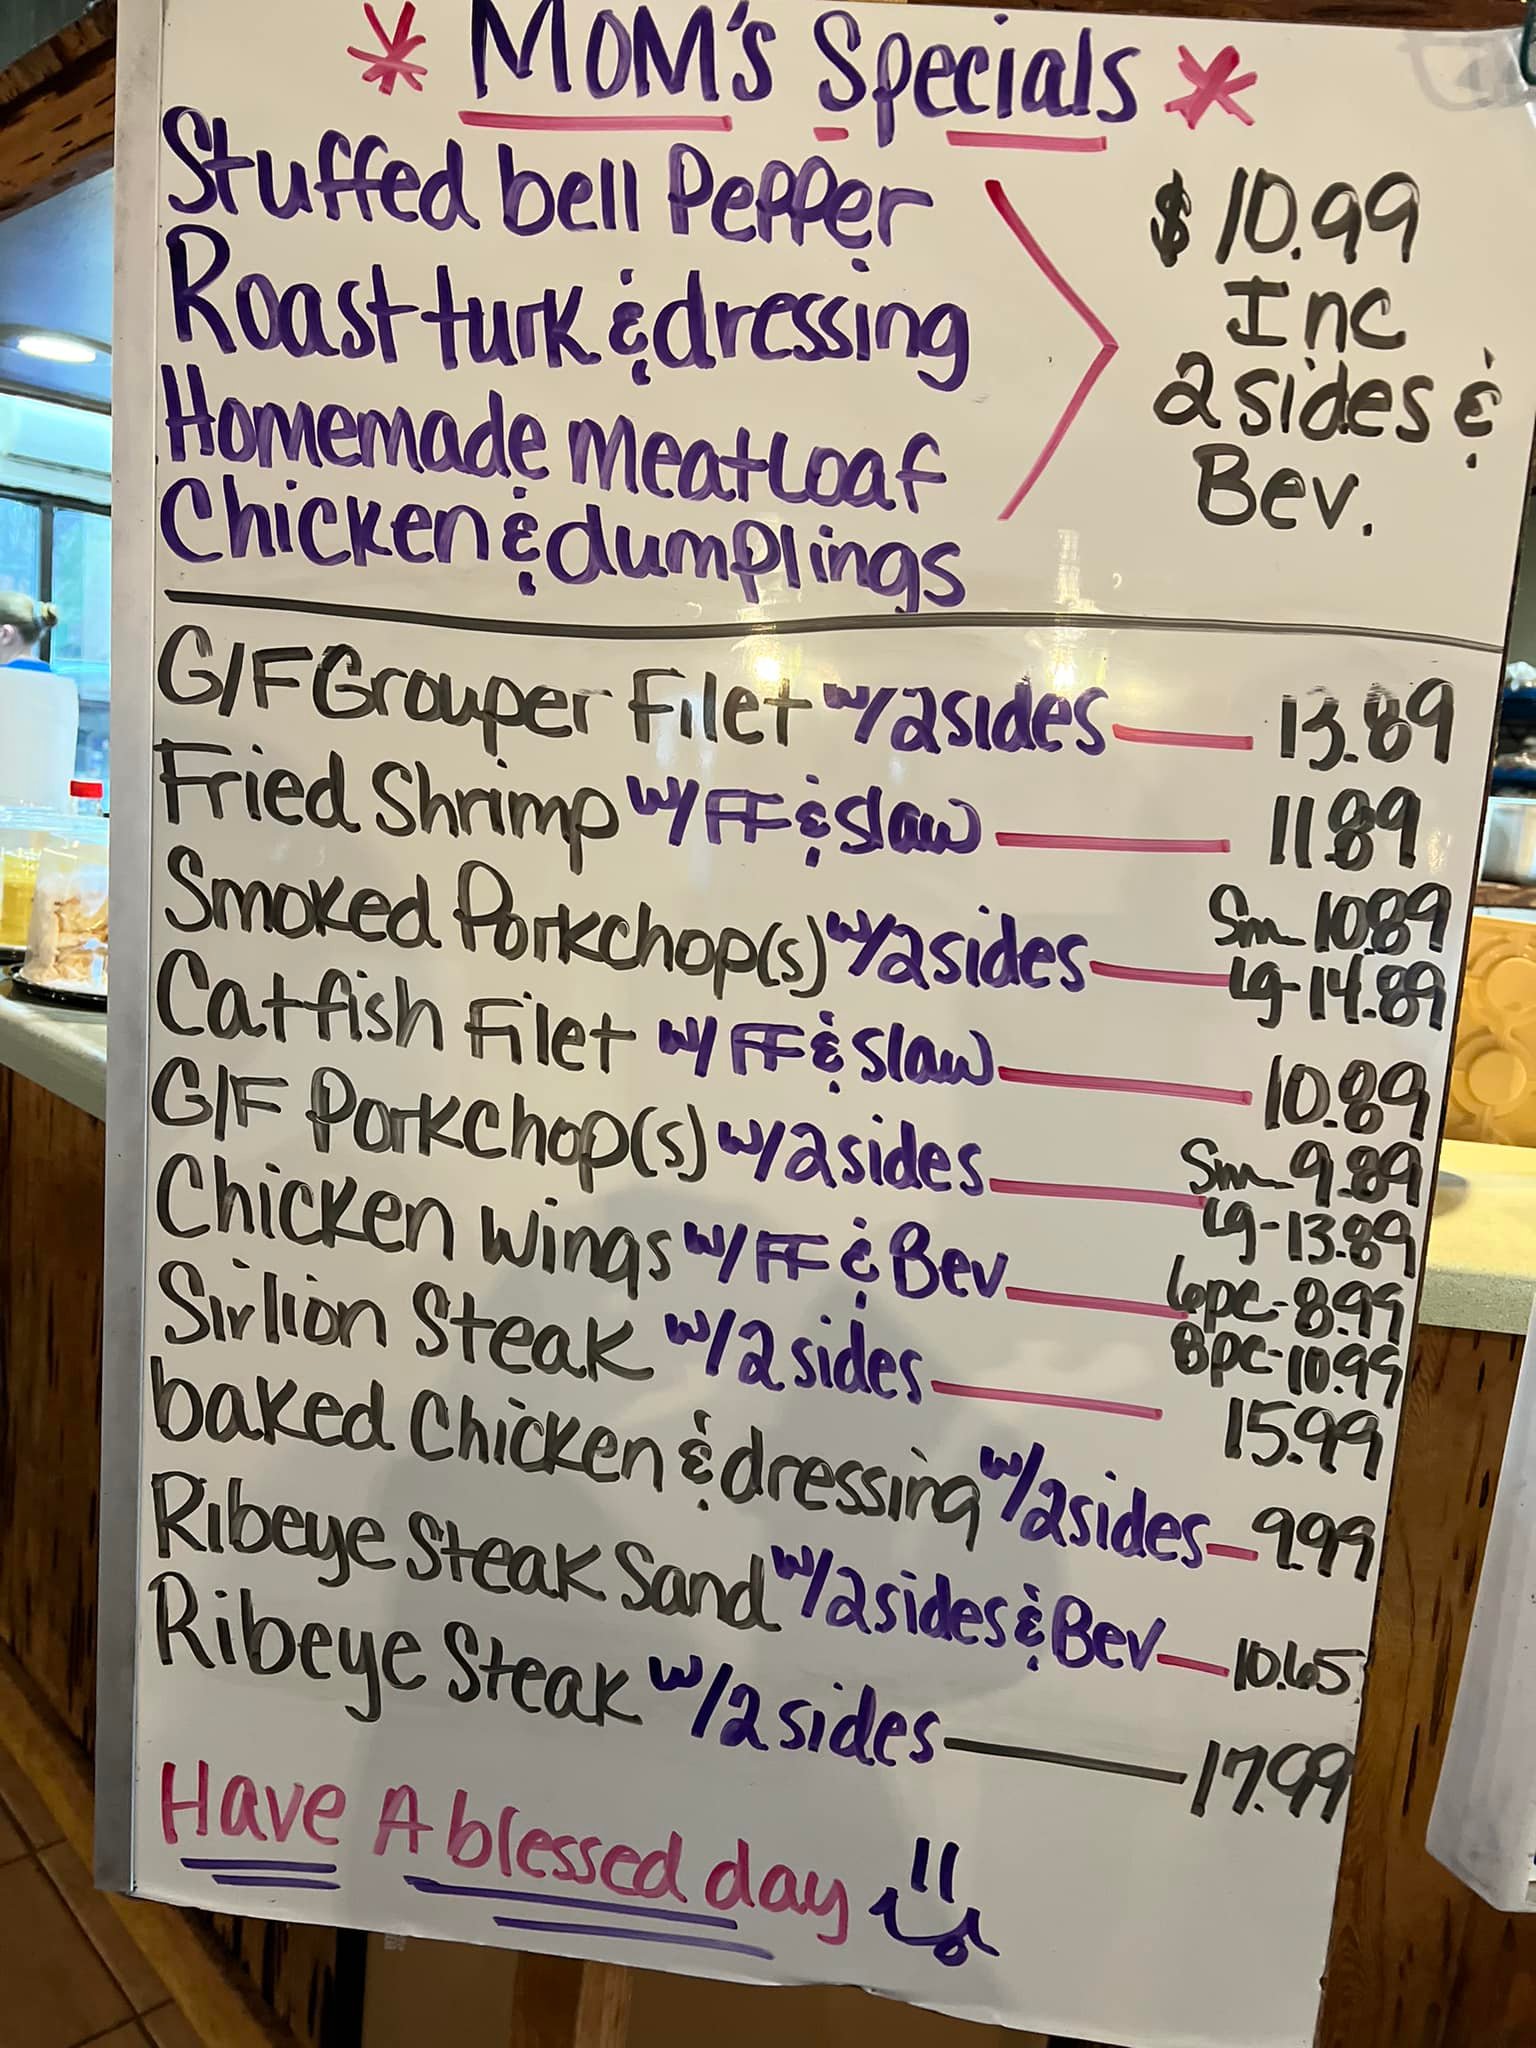 * MOM's Specials *
Stuffed bell Pepper
Roast turk & dressing
Homemade Meatloaf
Chicken & dumplings
$10.99
Inc
2 sides &
Bev.
G/F Grouper Filet w/2sides — 13.89
Fried Shrimp w/FF & Slaw — 11.89
Smoked Porkchop(s) w/2sides — Sm 10.89
Lg-14.89
Catfish Filet w/ FF & Slaw — 10.89
G/F Porkchop(s) w/2sides — Sm 9.89
Lg-13.89
Chicken Wings w/FF & Bev — 6pc-8.99
8pc-10.99
Sirlion Steak w/2 sides — 15.99
baked Chicken & dressing w/2sides — 9.99
Ribeye Steak Sand w/2sides & Bev — 10.65
Ribeye Steak w/2 sides — 17.99
Have A blessed day